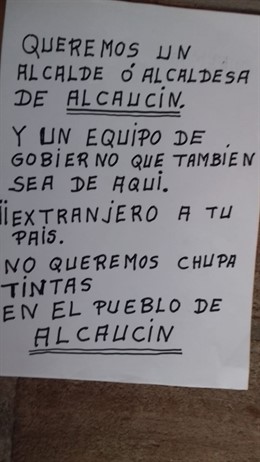 QUEREMOS UN
ALCALDE Ó ALCALDESA
DE ALCAUCÍN.
Y UN EQUIPO DE
GOBIERNO QUE TAMBIÉN
SEA DE AQUÍ.
¡¡EXTRANJERO A TU
PAÍS.
NO QUEREMOS CHUPA
TINTAS
EN EL PUEBLO DE
ALCAUCÍN